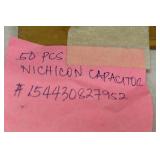 50 PCS
NICHICON CAPACITOR
#154430827952